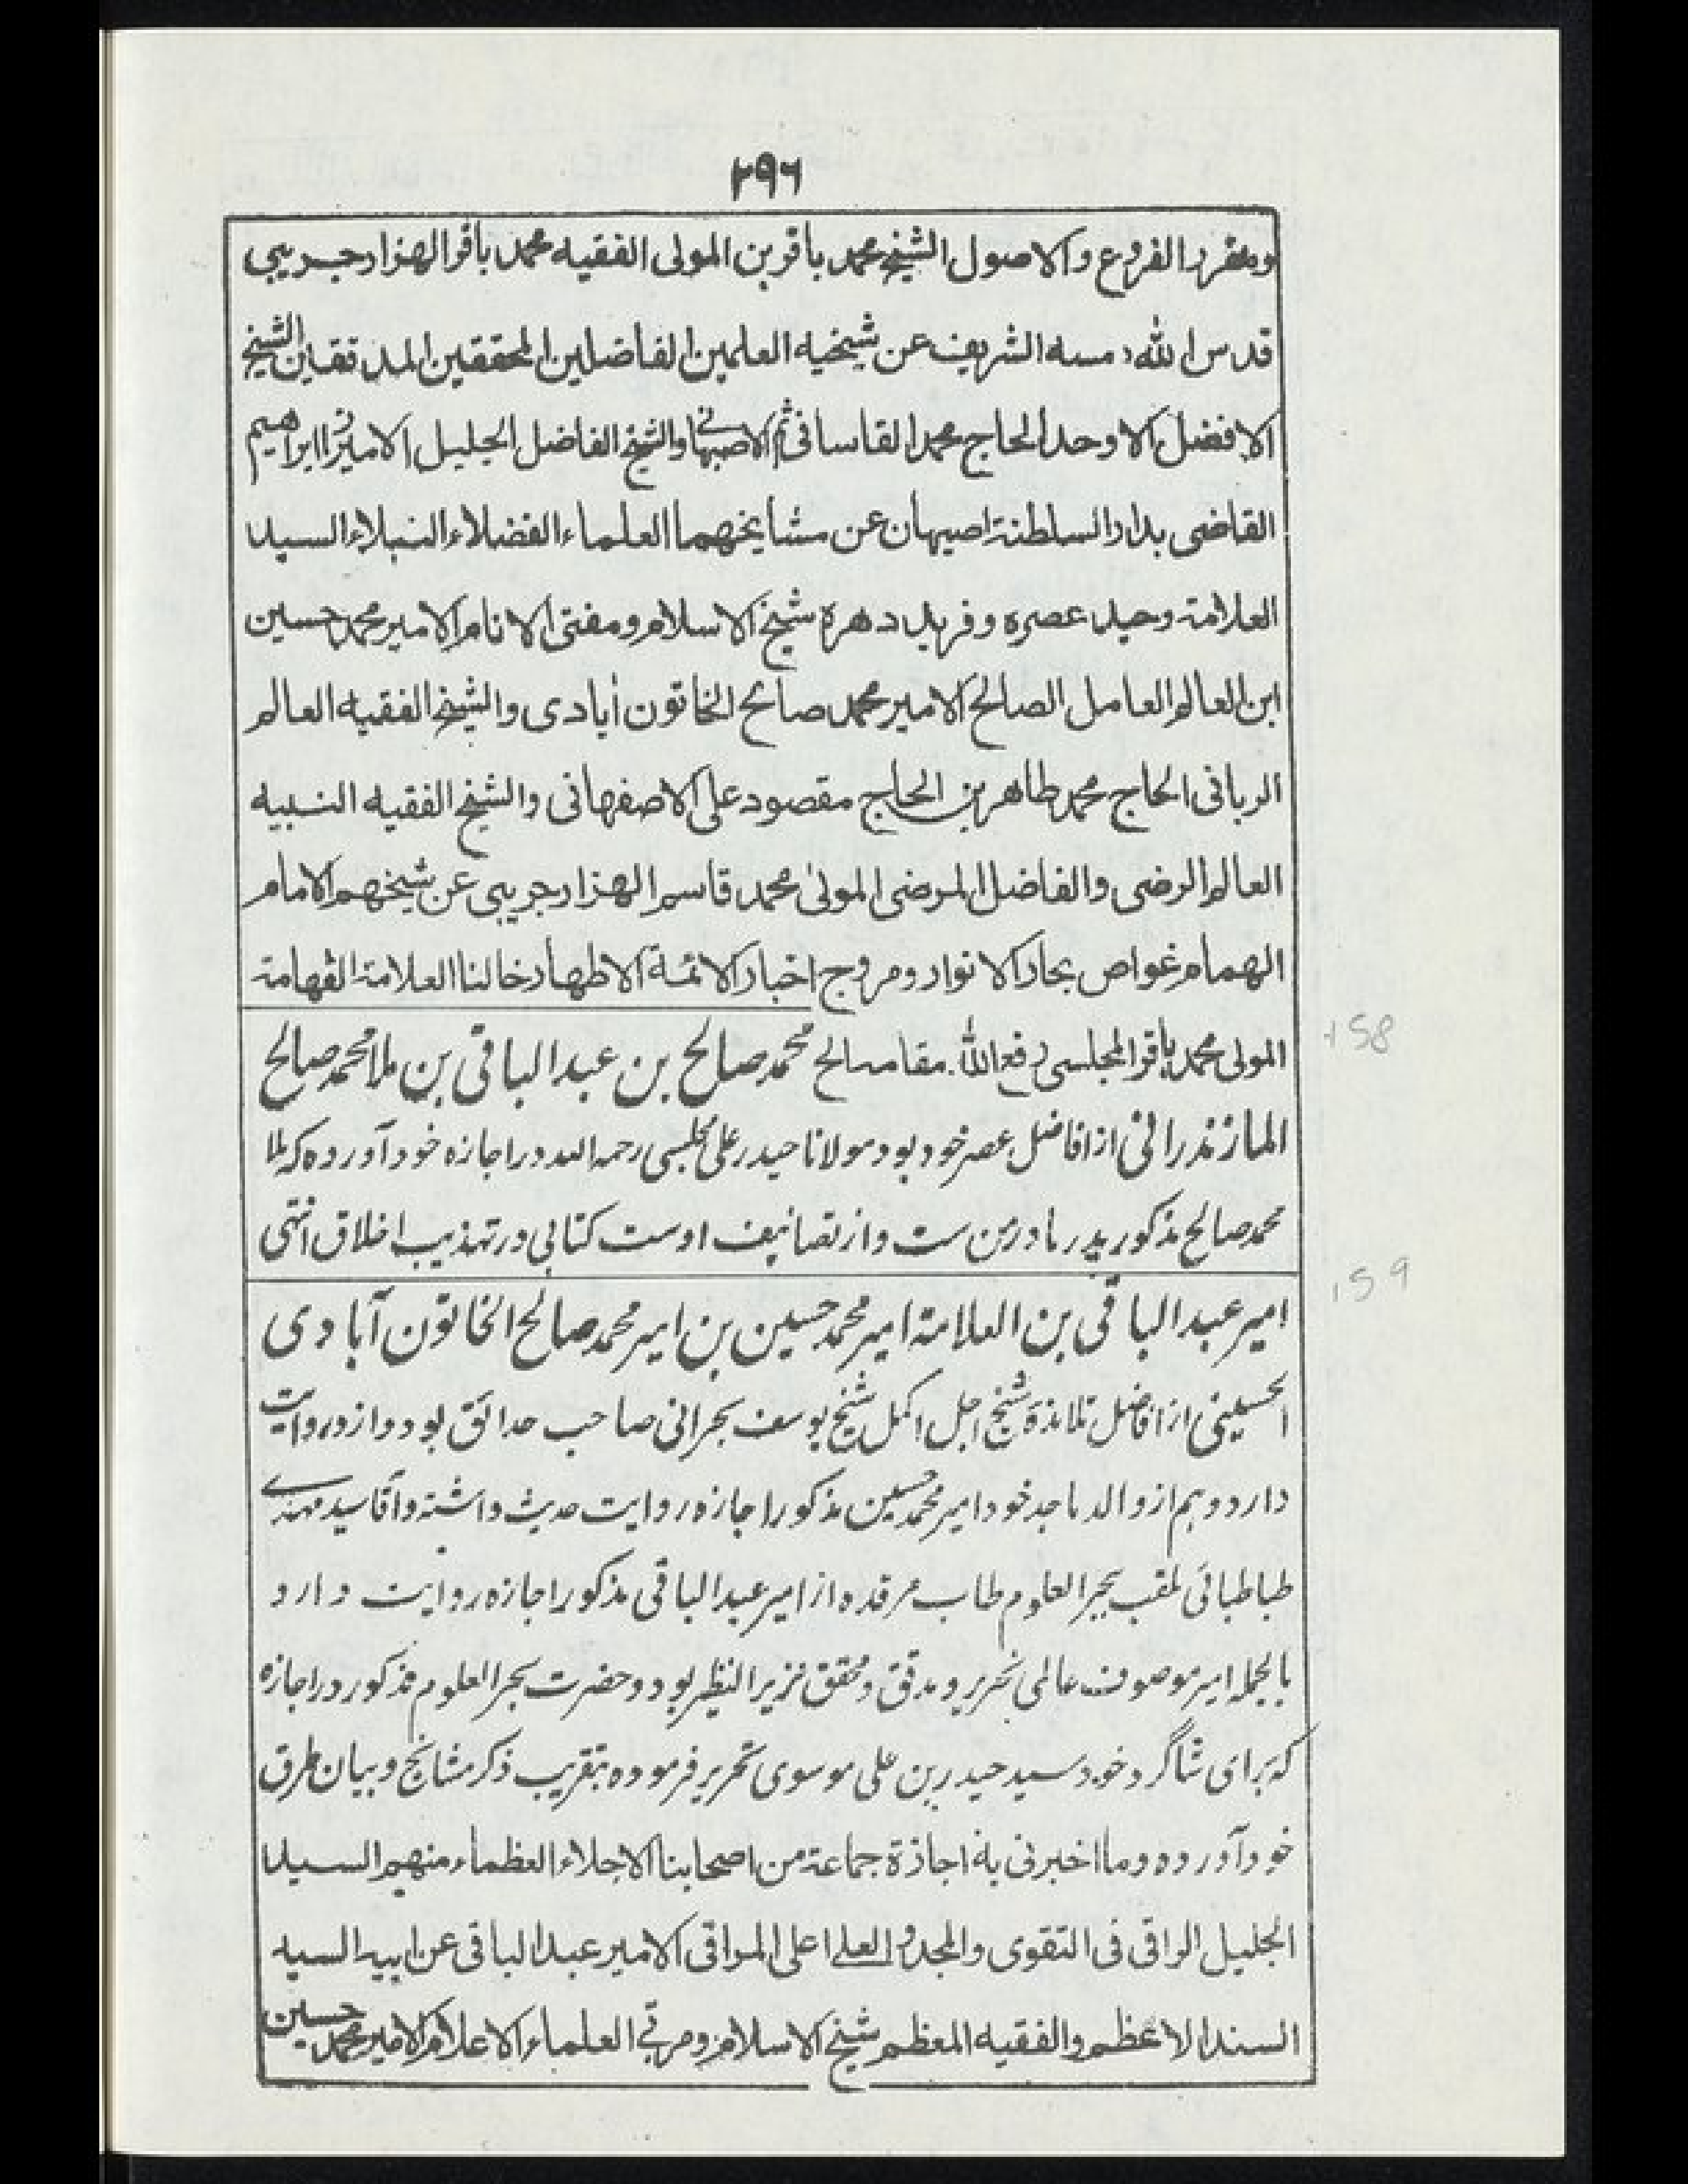 ۲۹۶
ومقرر الفروع والاصول الشيخ محمد باقر بن المولى الفقيه محمد باقر الهزار جريبي
قدس الله رمسه الشريف عن شيخيه العلمين الفاضلين المحققين المدققين الشيخ
الافضل الاوحد الحاج محمد القاساني ثم الاصبهاني والشيخ الفاضل الجليل الاميرزا ابراهيم
القاضى بدار السلطنة اصبهان عن مشايخهما العلماء الفضلاء النبلاء السيد
العلامة وحيد عصره وفريد دهره شيخ الاسلام ومفتى الانام الامير محمد حسين
ابن العالم العامل الصالح الامير محمد صالح الخاتون آبادى والشيخ الفقيه العالم
الربانى الحاج محمد طاهر بن الحاج مقصود على الاصفهانى والشيخ الفقيه النبيه
العالم الرضى والفاضل المرضى المولى محمد قاسم الهزار جريبى عن شيخهم الامام
الهمام غواص بحار الانوار ومروج اخبار الائمة الاطهار خالنا العلامة الفهامة
المولى محمد باقر المجلسى رفع الله مقامه الخ محمد صالح بن عبد الباقى بن ملا محمد صالح
158
المازندرانى از افاضل عصر خود بود مولانا حيدر على مجلسى رحمه الله در اجازه خود آورده كه ملا
محمد صالح مذكور پدر مادر من ست و از تصانيف اوست كتابى در تهذيب اخلاق انتهى
159
امير عبد الباقى بن العلامة امير محمد حسين بن امير محمد صالح الخاتون آبادى
الحسينى از افاضل تلامذه شيخ اجل اكمل شيخ يوسف بحرانى صاحب حدائق بود و ازو روايت
دارد و هم از والد ماجد خود امير محمد حسين مذكور اجازه روايت حديث داشته و آقا سيد مهدے
طباطبائى ملقب ببحر العلوم طاب مرقده از امير عبد الباقى مذكور اجازه روايت دارد
بالجمله امير موصوف عالمى نحرير و مدقق و محقق نزير النظير بود و حضرت بحر العلوم مذكور در اجازه
كه براى شاگرد خود سيد حيدر بن على موسوى تحرير فرموده بتقريب ذكر مشائخ و بيان طرق
خود آورده وما اخبرنى به اجازة جماعة من اصحابنا الاجلاء العظماء منهم السيد
الجليل الراقى فى التقوى والمجد والعلا اعلى المراقى الامير عبد الباقى عن ابيه السيه
السند الاعظم والفقيه المعظم شيخ الاسلام ومربي العلماء الاعلام الامير محمد حسين